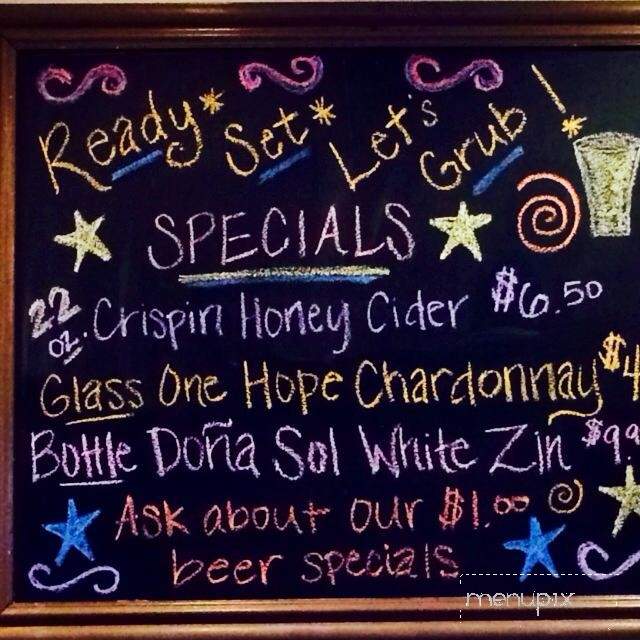 Ready* Set* Let's Grub!
SPECIALS
22 oz. Crispin Honey Cider $6.50
Glass One Hope Chardonnay $4
Bottle Doña Sol White Zin $9.9
Ask about our $1.00
beer specials
menupix